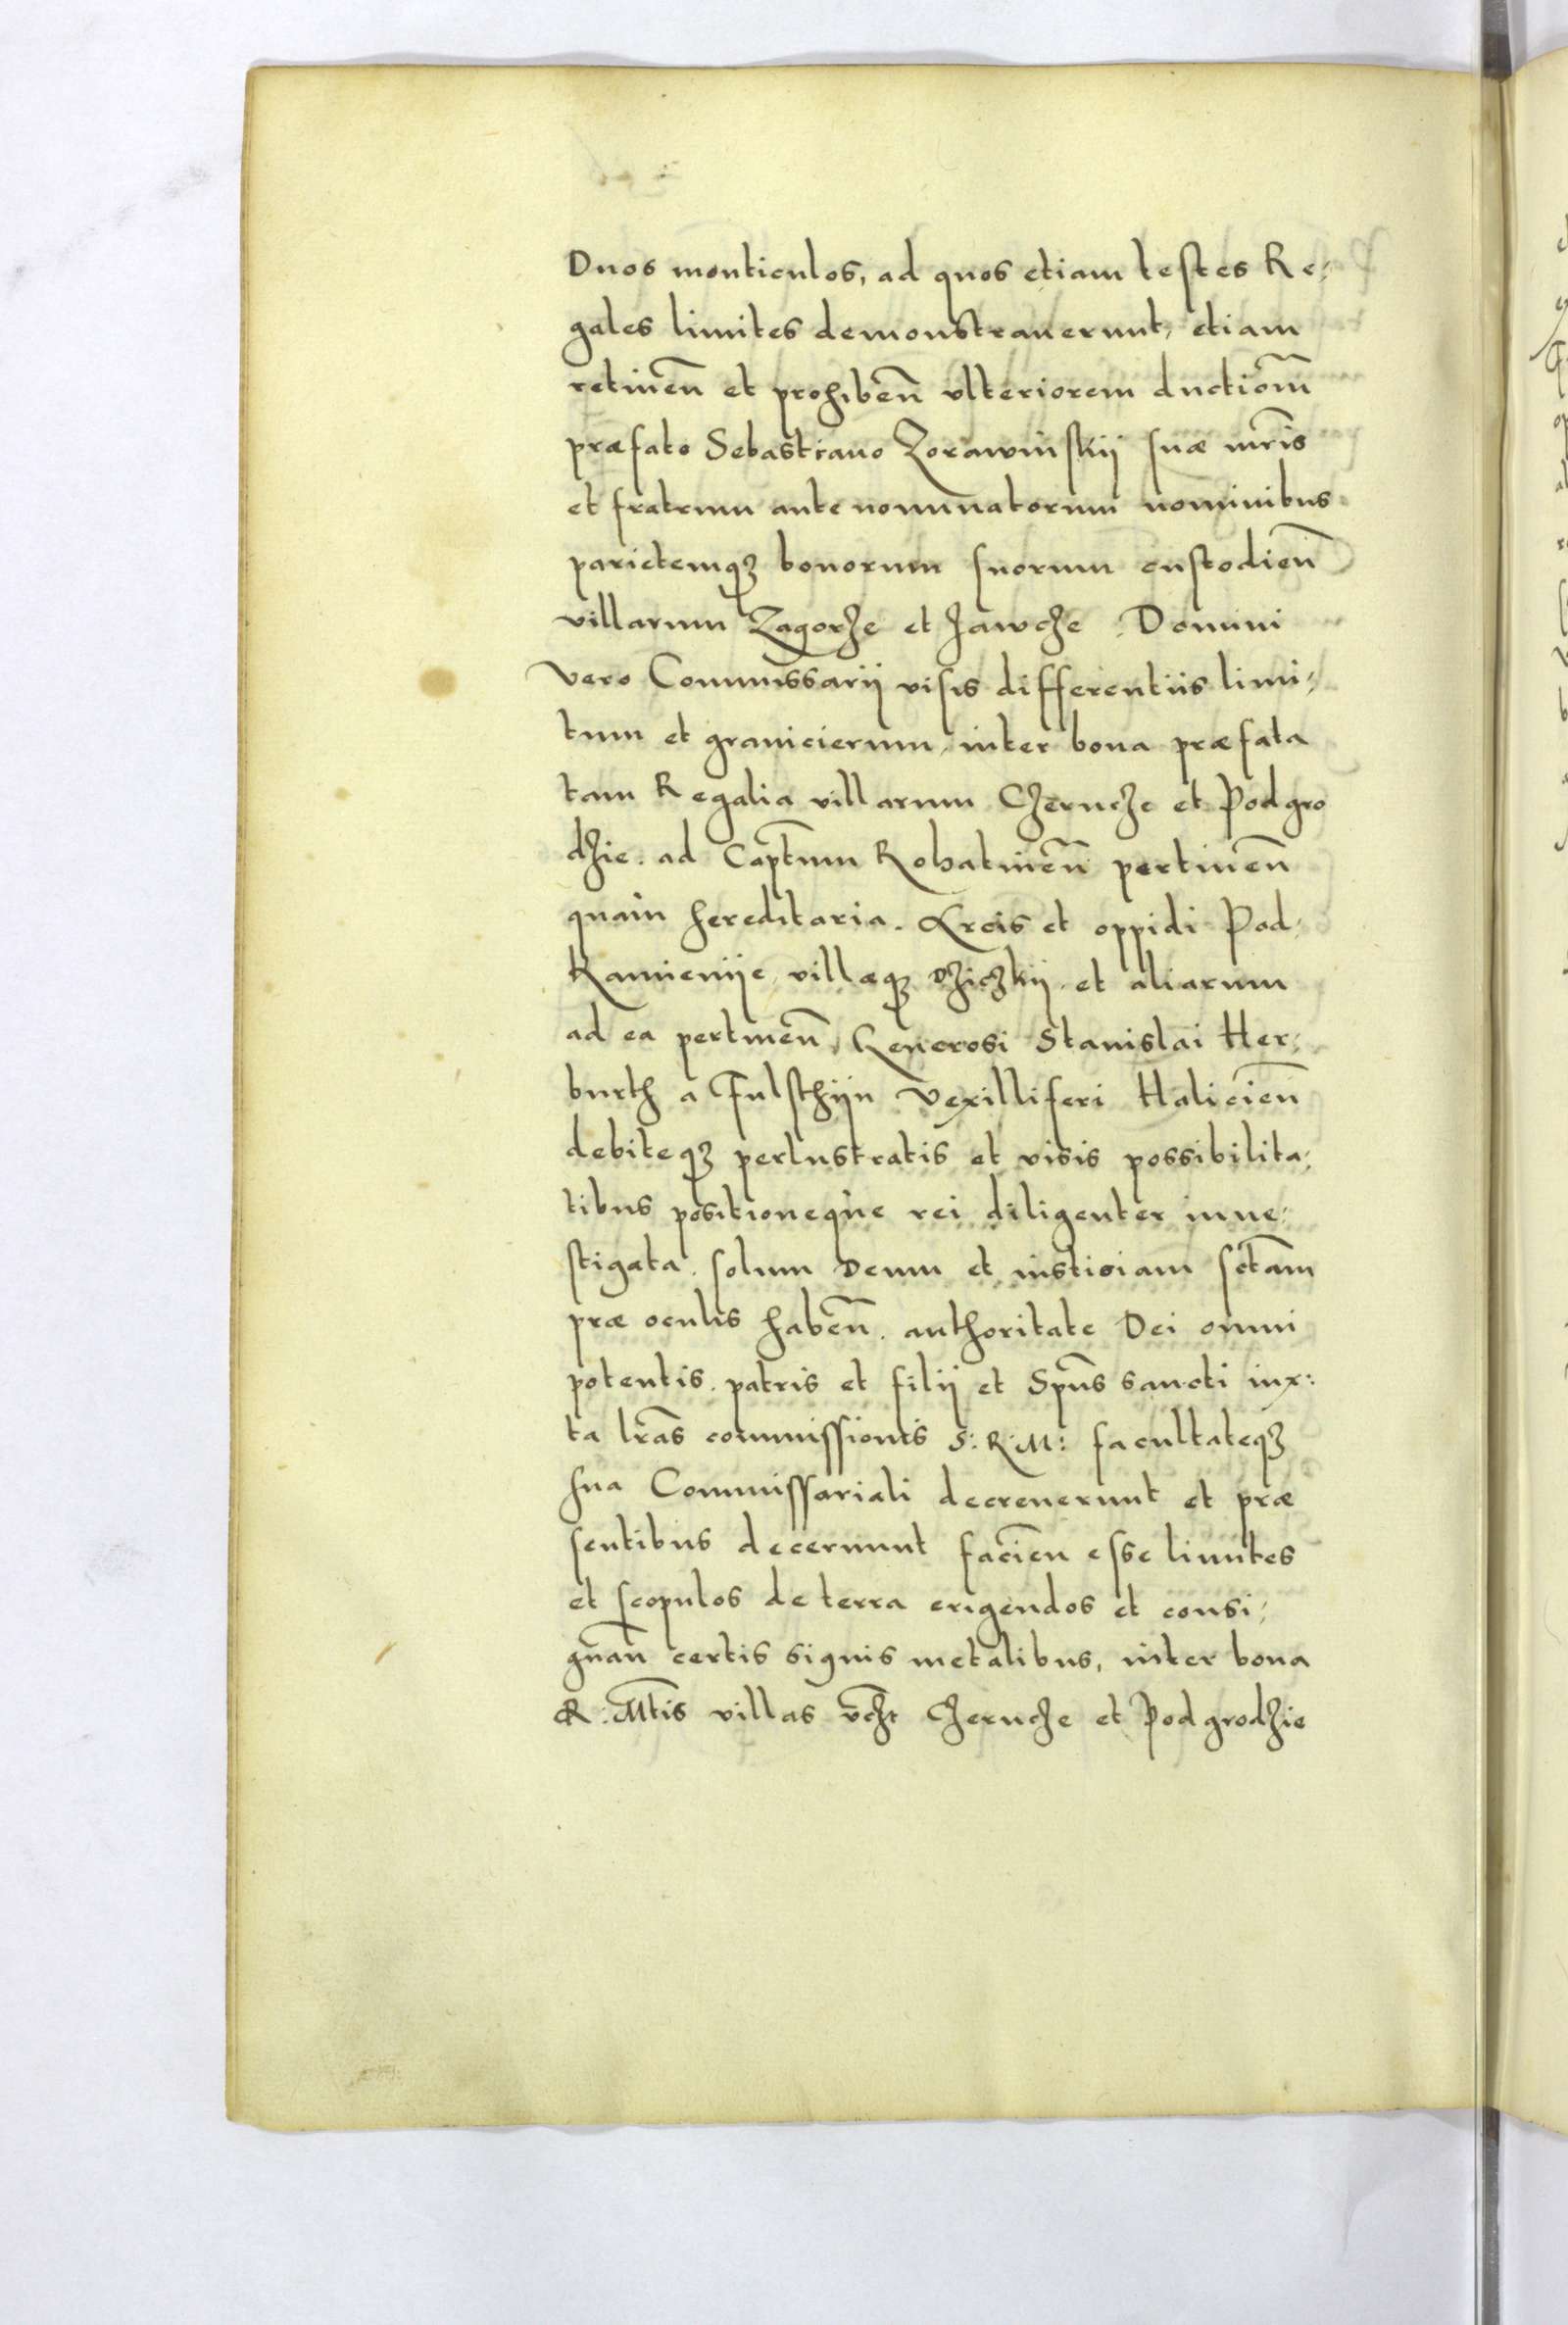 Duos monticulos, ad quos etiam testes Re-
gales limites demonstrauerunt, etiam
retineñ et prohibeñ vlteriorem ductiom̃
præfato Sebastiano Zorawinskij suæ mr̃is
et fratrum ante nominatorum nominibus
parietemqȝ bonorum suorum custodieñ
villarum Zagorze et Jawcze. Domini
vero Commissarij visis differentiis limi-
tum et granicierum, inter bona præfata
tam Regalia villarum Czerncze et Podgro
dzie. ad Capt̃um Rohatineñ pertineñ
quam hereditaria. Arcis et oppidi Pod-
kamienije, villæqȝ Dziczkij. et aliarum
ad ea pertineñ, Generosi Stanislai Her-
burth a Fulsthijn Vexilliferi Halicieñ
debiteqȝ perlustratis et visis possibilita-
tibus positioneque rei diligenter inue-
stigata. solum Deum et iusticiam sct̃am
præ oculis habeñ. authoritate Dei omni
potentis. patris et filij et Spũs sancti iux:
ta lr̃as commissionis S: R: M: facultateqȝ
sua Commissariali decreuerunt et præ
sentibus decernunt facieñ esse limites
et scopulos de terra erigendos et consi-
gnañ certis signis metalibus, inter bona
R: Mt̃is villas vcz̃t Czerncze et Podgrodzie